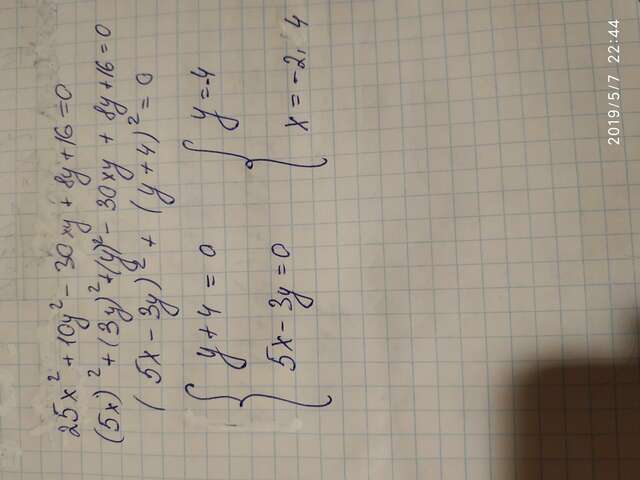 25x² + 10y² - 30xy + 8y + 16 = 0
(5x)² + (3y)² + (y)² - 30xy + 8y + 16 = 0
(5x - 3y)² + (y + 4)² = 0
{ y + 4 = 0 { y = -4
5x - 3y = 0 x = -2,4
2019/5/7 22:44